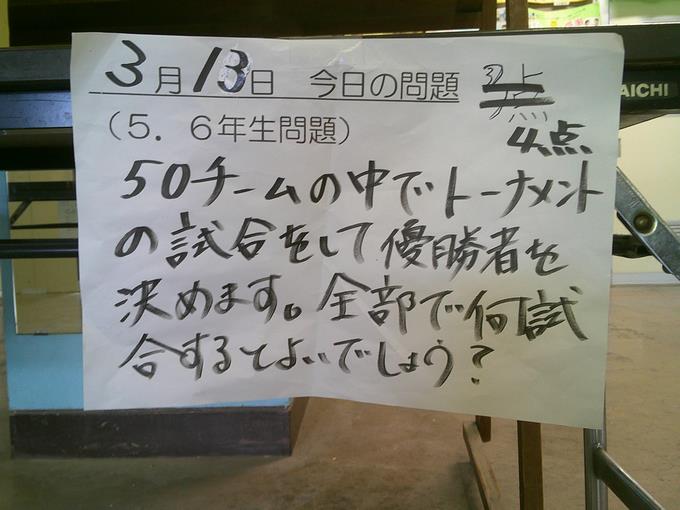 3月13日 今日の問題
4点
(5.6年生問題)
50チームの中でトーナメント
の試合をして優勝者を
決めます。全部で何試
合するとよいでしょう?
AICHI